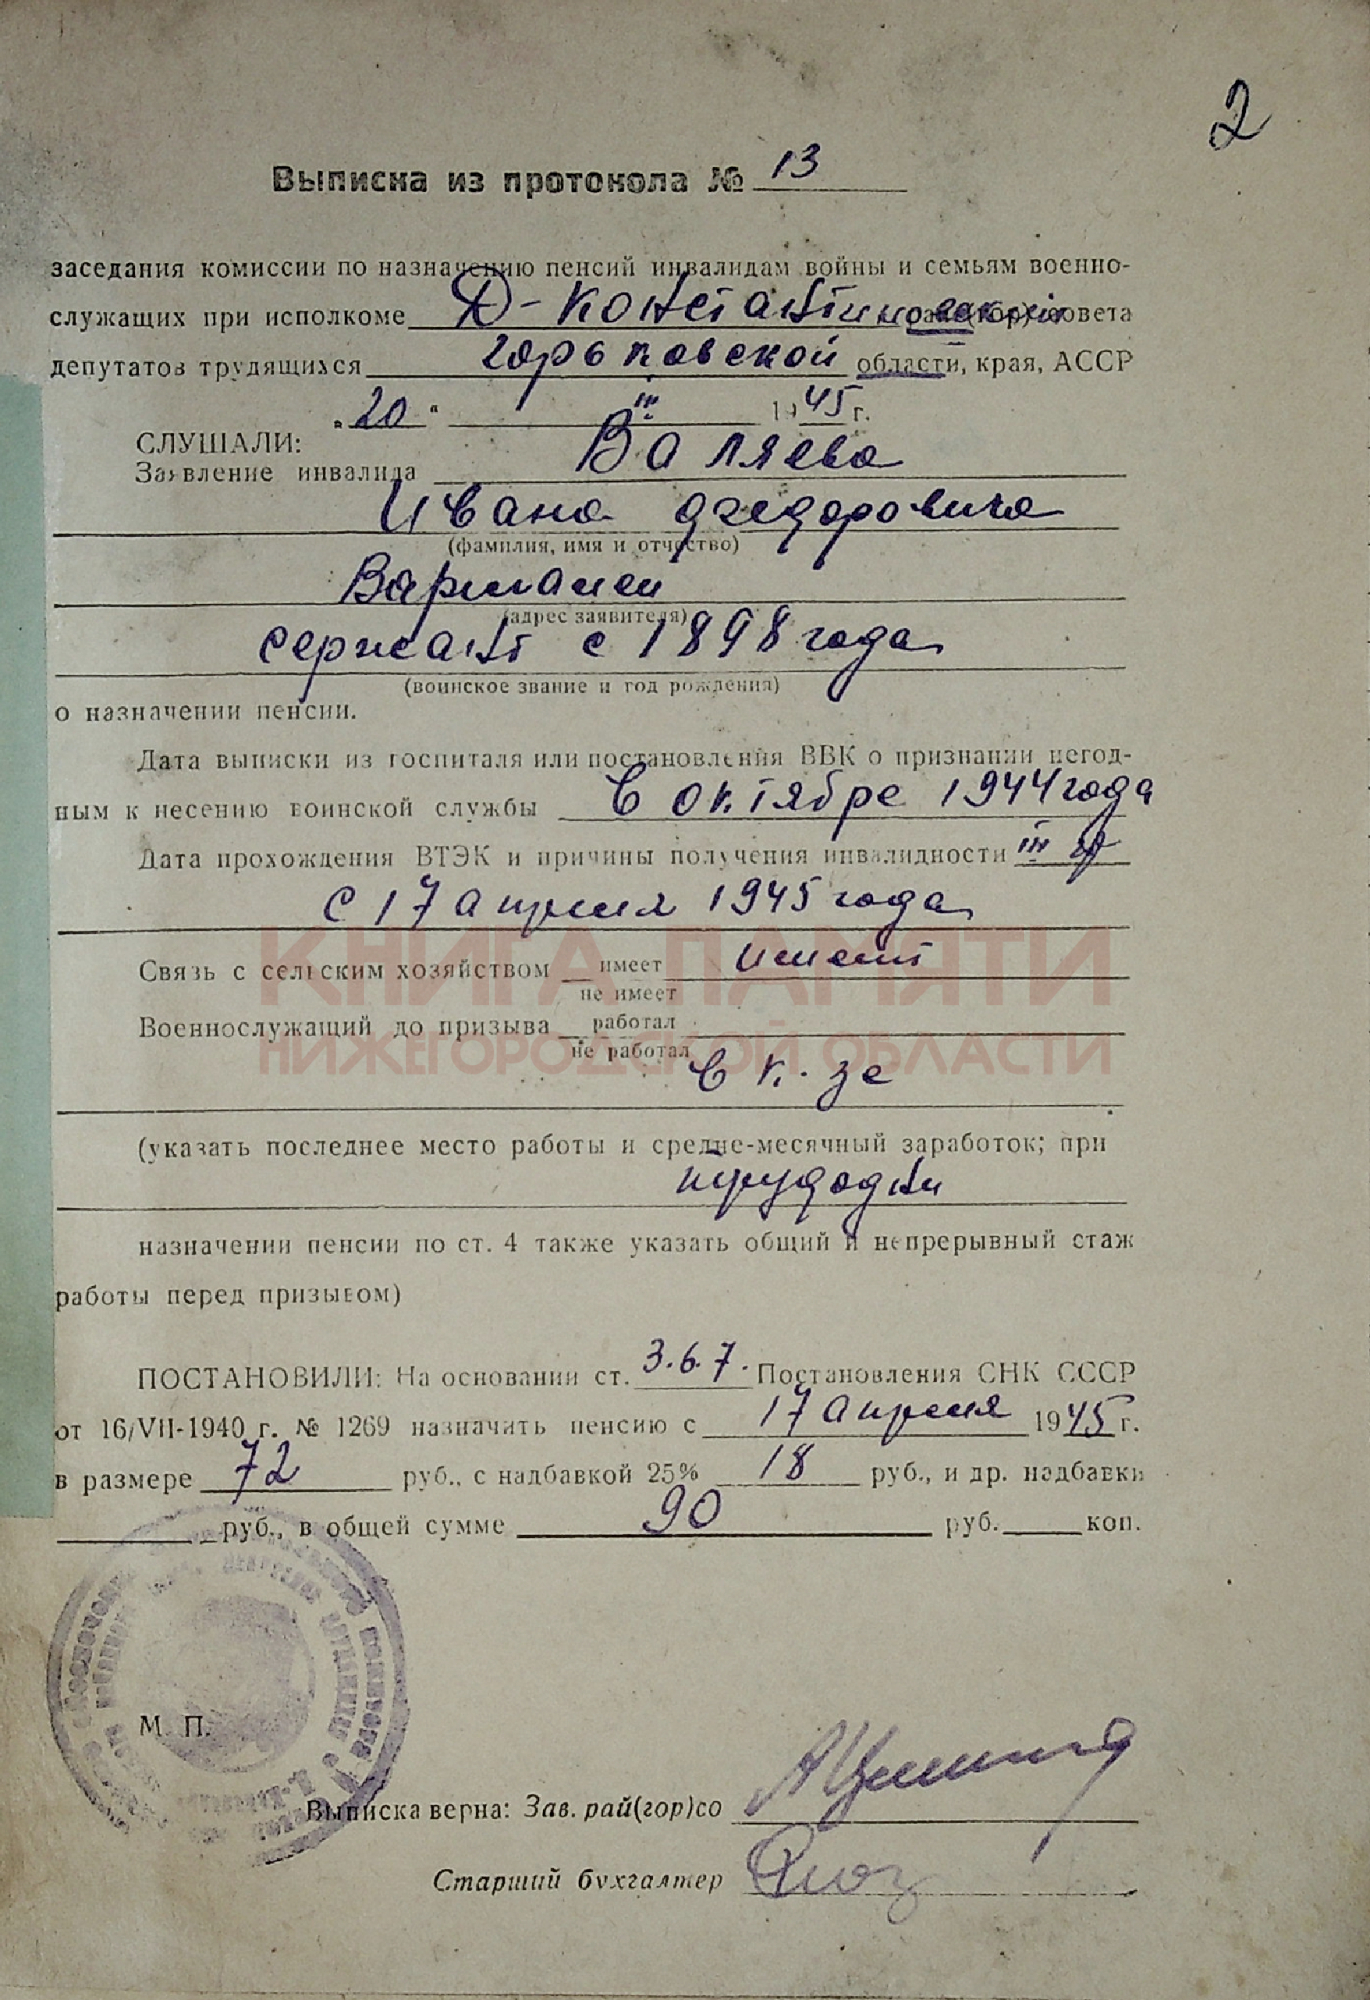 2
Выписка из протокола № 13
заседания комиссии по назначению пенсий инвалидам войны и семьям военно-
служащих при исполкоме Д-Константиновском рай(гор)совета
депутатов трудящихся Горьковской области, края, АССР
„20“ III 1945 г.
СЛУШАЛИ:
Заявление инвалида Валяева
Ивана Федоровича
(фамилия, имя и отчество)
(адрес заявителя)
сержант с 1898 года
(воинское звание и год рождения)
о назначении пенсии.
Дата выписки из госпиталя или постановления ВВК о признании негод-
ным к несению воинской службы в октябре 1944 года
Дата прохождения ВТЭК и причины получения инвалидности III гр
с 17 апреля 1945 года
КНИГА ПАМЯТИ
Связь с сельским хозяйством имеет имеет
не имеет
Военнослужащий до призыва работал
НИЖЕГОРОДСКОЙ ОБЛАСТИ
не работал
в к-зе
(указать последнее место работы и средне-месячный заработок; при
трудодни
назначении пенсии по ст. 4 также указать общий и непрерывный стаж
работы перед призывом)
ПОСТАНОВИЛИ: На основании ст. 3.6.7. Постановления СНК СССР
от 16/VII-1940 г. № 1269 назначить пенсию с 17 апреля 1945 г.
в размере 72 руб., с надбавкой 25% 18 руб., и др. надбавки
руб., в общей сумме 90 руб. коп.
М. П.
Выписка верна: Зав. рай(гор)со
Старший бухгалтер